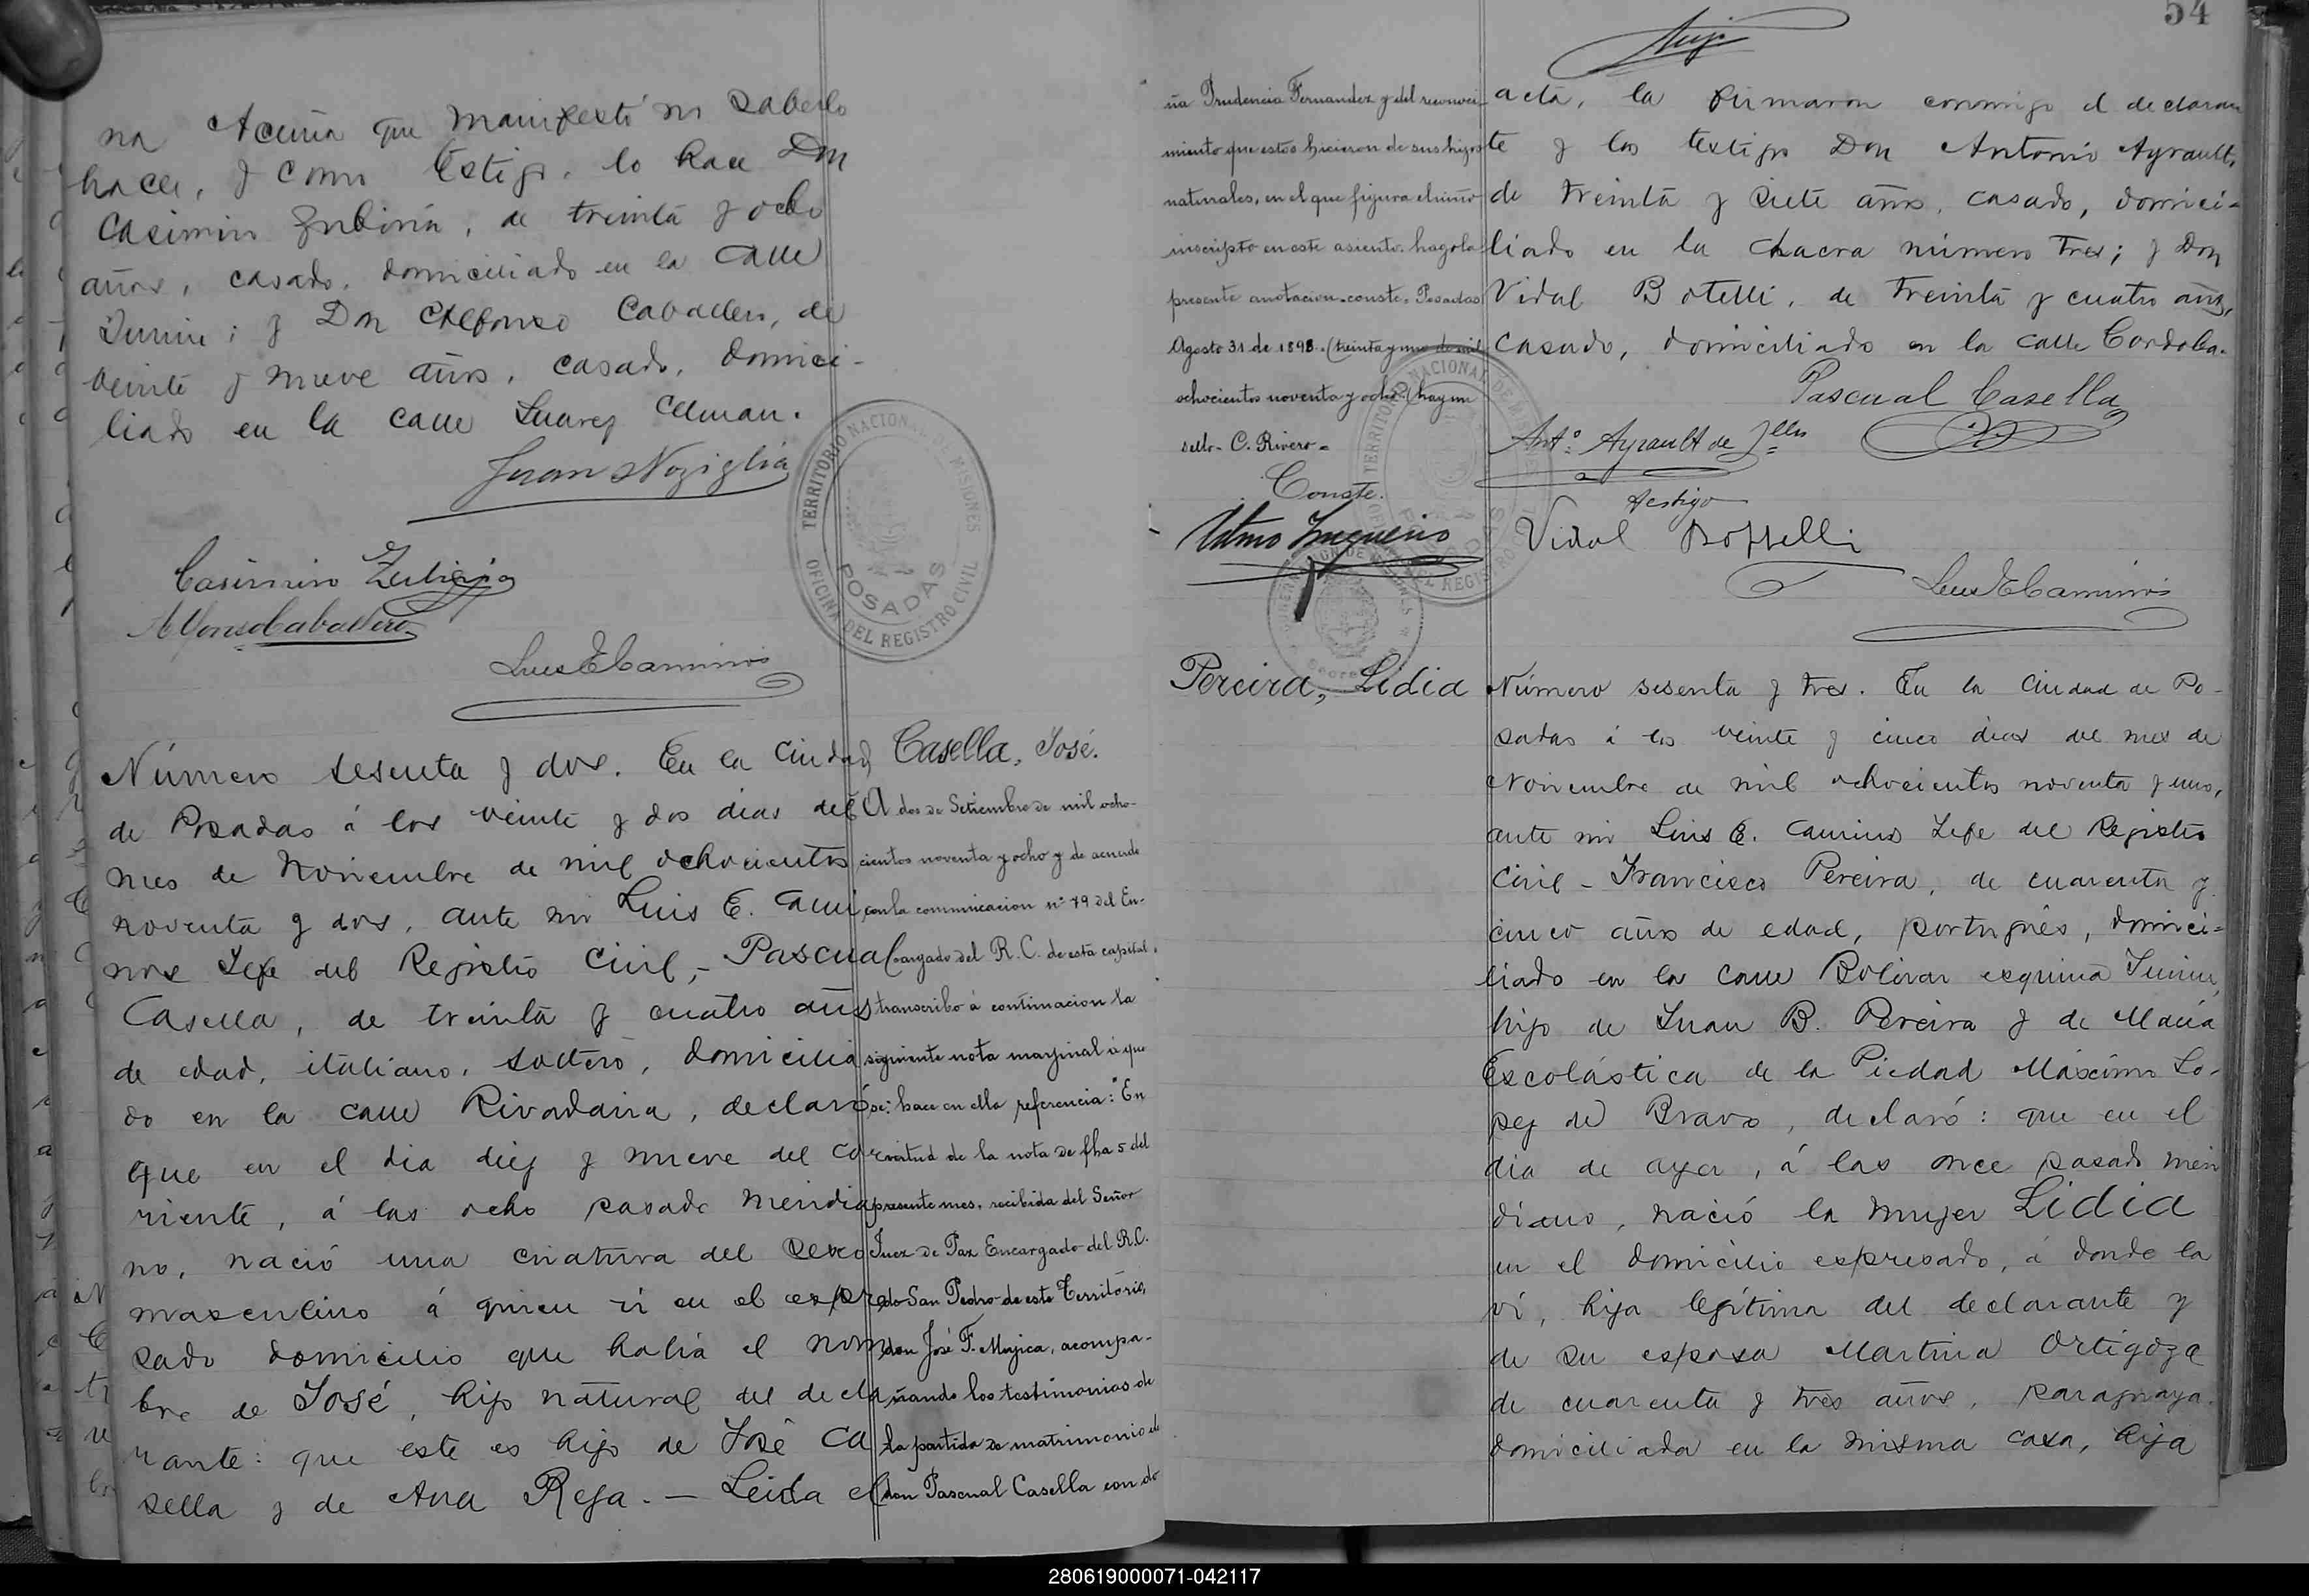 na Acuña que manifestó no saberlo
hacer, y como testigo, lo hace Don
Casimiro Zubiria, de treinta y ocho
años, casado, domiciliado en la calle
Junin; y Don Alfonso Caballero, de
veinte y nueve años, casado, domici-
liado en la calle Juarez Celman.
Juan Noziglia
Casimiro Zubiria
Alfonso Caballero
Luis E Caminos
TERRITORIO NACIONAL DE MISIONES
POSADAS
OFICINA DEL REGISTRO CIVIL
Número sesenta y dos. En la Ciudad
de Posadas á los veinte y dos dias del
mes de Noviembre de mil ochocientos
noventa y dos, ante mi Luis E. Cami
nos Jefe del Registro Civil,- Pascual
Casella, de treinta y cuatro años
de edad, italiano, soltero, domicilia
do en la calle Rivadavia, declaró
que en el dia diez y nueve del cor
riente, á las ocho pasado meridia
no, nació una criatura del sexo
masculino á quien vi en el expre
sado domicilio que habia el nom
bre de José, hijo natural del decla
rante: que este es hijo de José Ca
sella y de Ana Reja. — Leida el
Casella, José.
A dos de Setiembre de mil ocho-
cientos noventa y ocho y de acuerdo
con la comunicacion nº 79 del En-
cargado del R.C. de esta capital,
transcribo á continuacion la
siguiente nota marginal á que
se hace en ella referencia: "En
virtud de la nota de fha 5 del
presente mes, recibida del Señor
Juez de Paz Encargado del R.C.
de San Pedro de este Territorio,
don José F. Mujica, acompa-
ñando los testimonios de
la partida de matrimonio de
don Pascual Casella con do
54
ña Prudencia Fernandez y del reconoci-
miento que estos hicieron de sus hijos
naturales, en el que figura el niño
inscripto en este asiento, hago la
presente anotacion. conste. Posadas
Agosto 31 de 1898. (treinta y uno de mil
ochocientos noventa y ocho) (hay un
sello- C. Rivero-
Conste.
acta, la firmaron conmigo el declaran
te y los testigos Don Antonio Ayrault,
de treinta y siete años, casado, domici-
liado en la chacra número tres; y Don
Vidal Botelli, de treinta y cuatro años,
casado, domiciliado en la calle Cordoba.
Pascual Casella
Antº Ayrault de
testigo
Vidal Bottelli
Luis E Caminos
TERRITORIO NACIONAL DE MISIONES
POSADAS
Pereira, Lidia
Número sesenta y tres. En la Ciudad de Po-
sadas á los veinte y cinco dias del mes de
Noviembre de mil ochocientos noventa y uno,
ante mi Luis E. Caminos Jefe del Registro
Civil - Francisco Pereira, de cuarenta y
cinco años de edad, portugués, domici-
liado en la calle Bolivar esquina Junin,
hijo de Juan B. Pereira y de Maria
Escolástica de la Piedad Máximo Lo-
pez de Bravo, declaró: que en el
dia de ayer, á las once pasado meri
diano, nació la mujer Lidia
en el domicilio espresado, á donde la
vi, hija legítima del declarante y
de su esposa Martina Ortigoza
de cuarenta y tres años, paraguaya,
domiciliada en la misma casa, hija
280619000071-042117